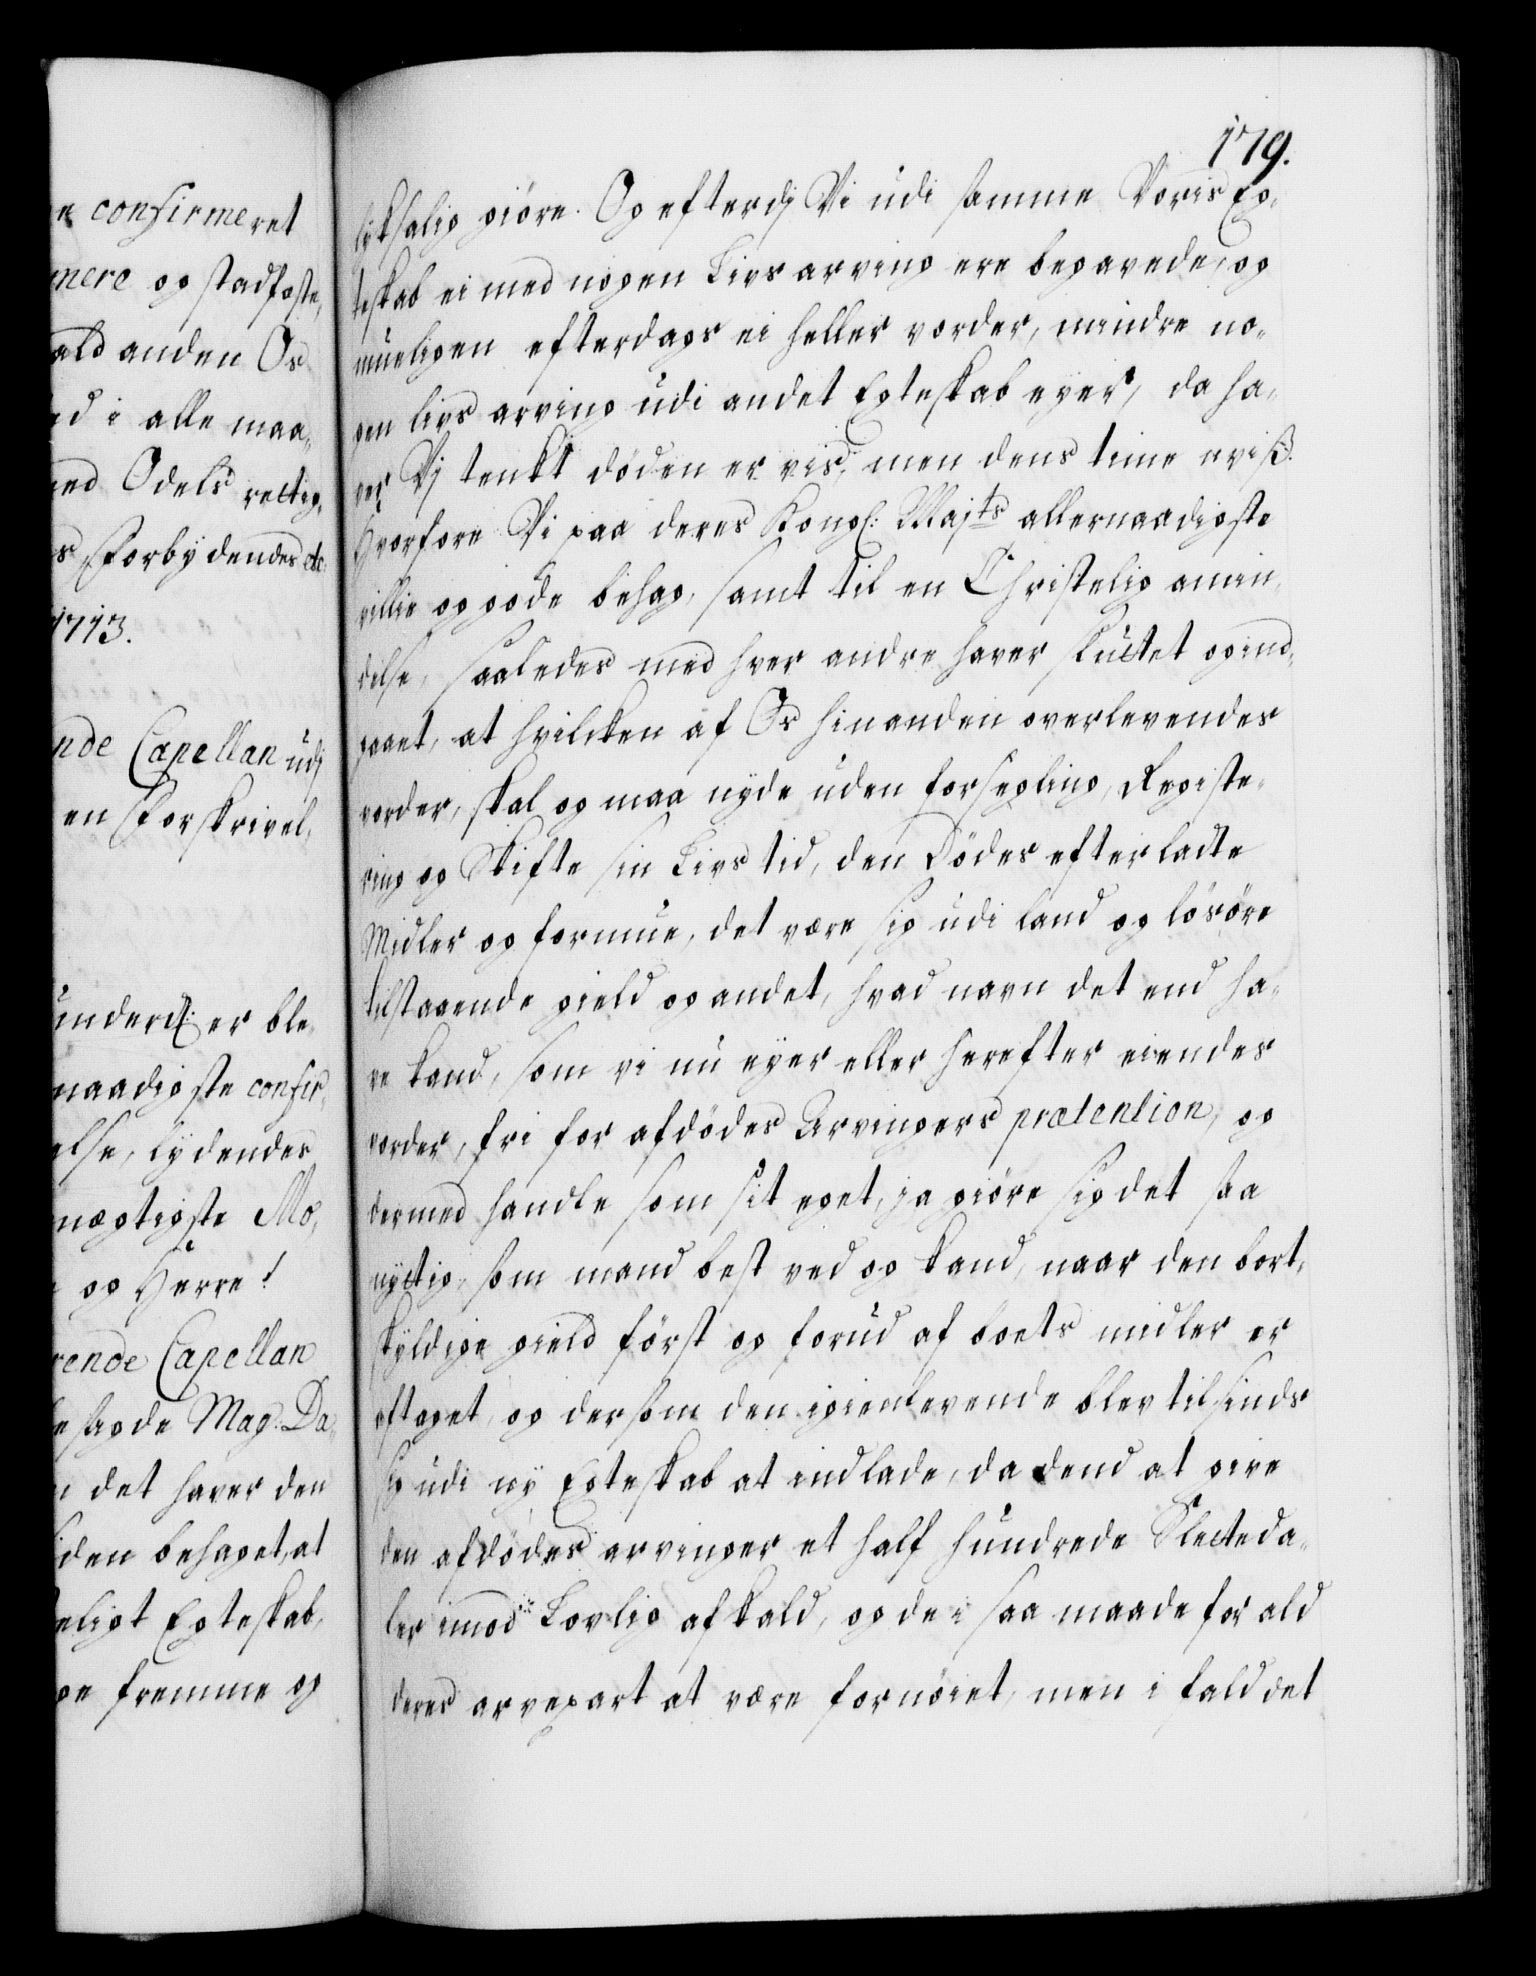 n confirmeret
mere og stadfæste,
ald anden Os
ed i alle maa-
med Odels rettig-
s Forbydendes etc:
1713.
nde Capellan udj
en Forskrivel-
underd: er ble-
naadigste confir-
else, lydendes
mægtigste Mo-
og Herre!
rende Capellan
sagde Mag. Da-
det haver den
den behaget, at
eligt Egteskab,
ge fremme og
179.
lyksalig giöre. Og efterdj Vi udi samme Voris Eg-
teskab ei med nogen Livs arving ere begavede, og
mueligen efterdags ei heller vorder, mindre no-
gen livs arving udi andet Egteskab eyer, da ha-
ver Vj tenkt döden er vis, men dens time uviß.
Hvorfore Vi paa deres Kongl: Majts allernaadigste
villie og gode behag, samt til en Christelig amin-
delse, saaledes med hver andre haver sluttet og ind-
gaaet, at hvilcken af Os hinanden overlevendes
vorder, skal og maa nyde uden forsegling, Registe-
ring og Skifte sin Livs tid, den Dödes efterladte
Midler og formue, det være sig udi land og lösöre
tilstaaende gield og andet, hvad navn det end ha-
ve kand, som vi nu eyer eller herefter eiendes
vorder, fri for afdödes Arvingers prætention, og
dermed handle som sit eget, ja giöre sig det saa
nyttig, som mand best ved og kand, naar den bort-
skyldige gield först og forud af boets midler er
aftaget, og dersom den igienlevende blev tilsinds
sig udi ny Egteskab at indlade, da dend at give
den afdödes arvinger et half hundrede Slecteda-
ler imod Lovlig afkald, og de i saa maade for ald
deres arvepart at være fornöiet, men i fald det